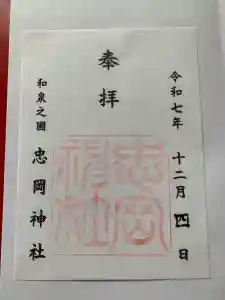 令和七年 十二月四日
奉拝
和泉之國 忠岡神社
忠岡神社